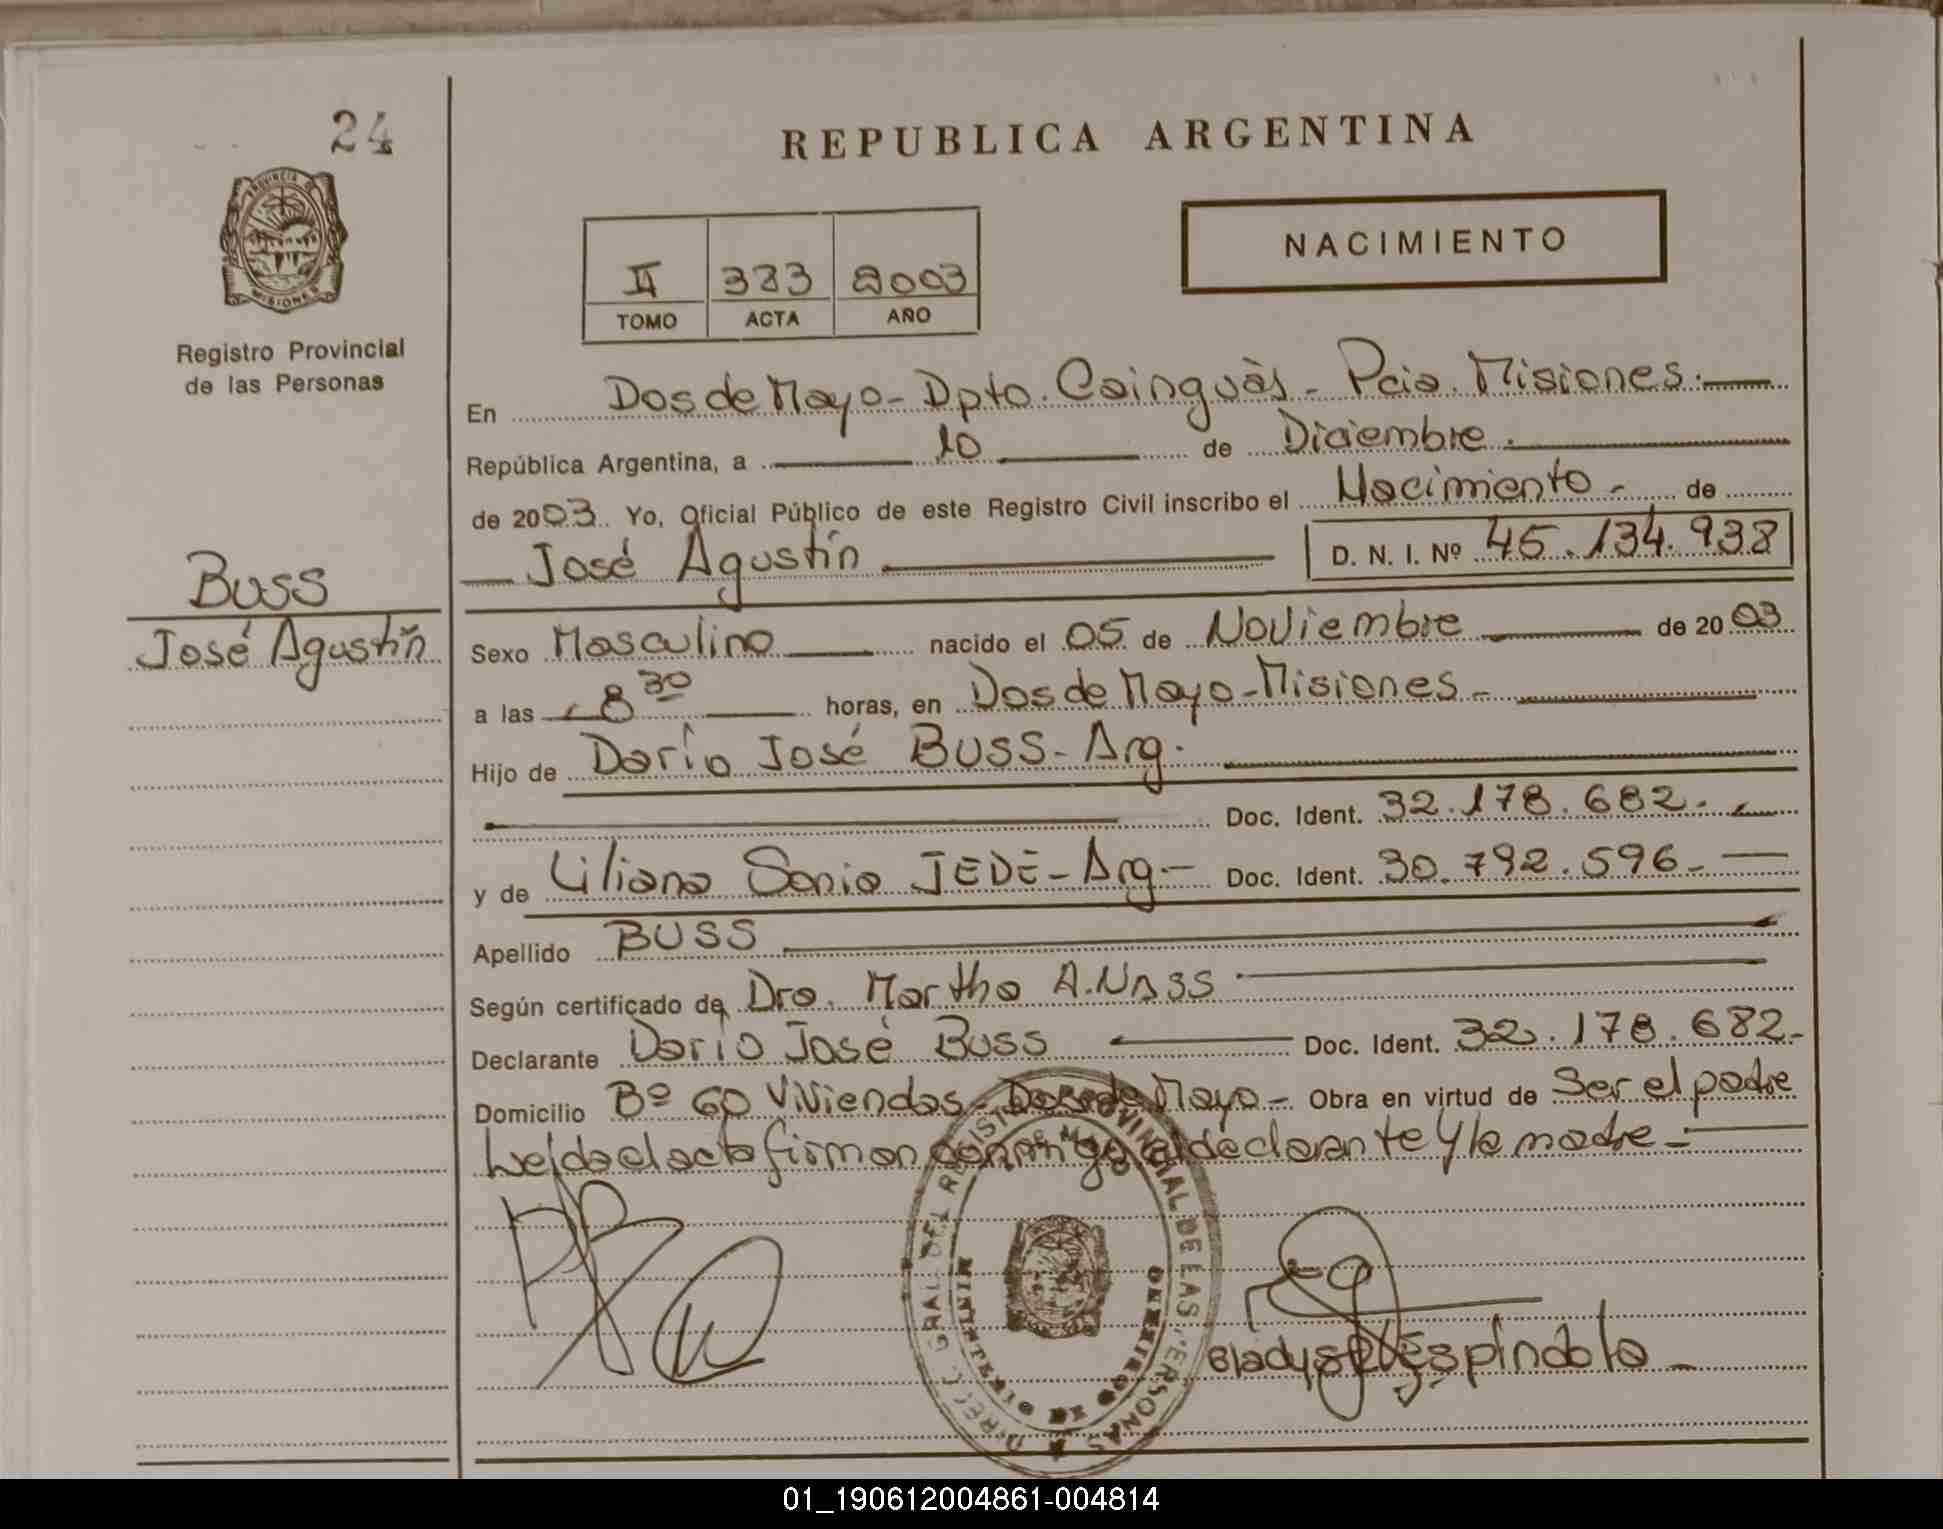 24
REPUBLICA ARGENTINA
PROVINCIA DE MISIONES
Registro Provincial
de las Personas
II 383 2003
TOMO ACTA AÑO
NACIMIENTO
En Dos de Mayo - Dpto. Cainguàs - Pcia. Misiones.
República Argentina, a 10 de Diciembre.
de 2003. Yo, Oficial Público de este Registro Civil inscribo el Nacimiento - de
José Agustín D. N. I. Nº 45.134.938
BUSS
José Agustín
Sexo Masculino nacido el 05 de Noviembre de 2003
a las 8 30 horas, en Dos de Mayo - Misiones -
Hijo de Darío José BUSS - Arg.
Doc. Ident. 32.178.682. -
y de Liliana Sonia JEDE - Arg. - Doc. Ident. 30.792.596. -
Apellido BUSS
Según certificado de Dra. Martha A.
Declarante Darío José Buss Doc. Ident. 32.178.682 -
Domicilio Bº 60 Viviendas Dos de Mayo - Obra en virtud de Ser el padre
Leída el acta firman conmigo el declarante y la madre -
DIREC. GRAL. DEL REGISTRO PROVINCIAL DE LAS PERSONAS
MINISTERIO DE GOBIERNO
Gladys Espíndola
01_190612004861-004814